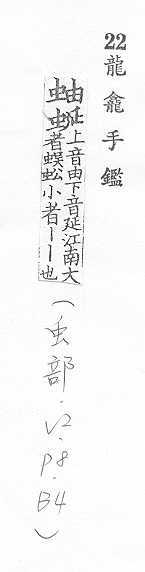 22 龍龕手鑑
蚰蜒上音由下音延江南大
者蜈蚣小者丨丨也
(虫部.V2.P8.B4)